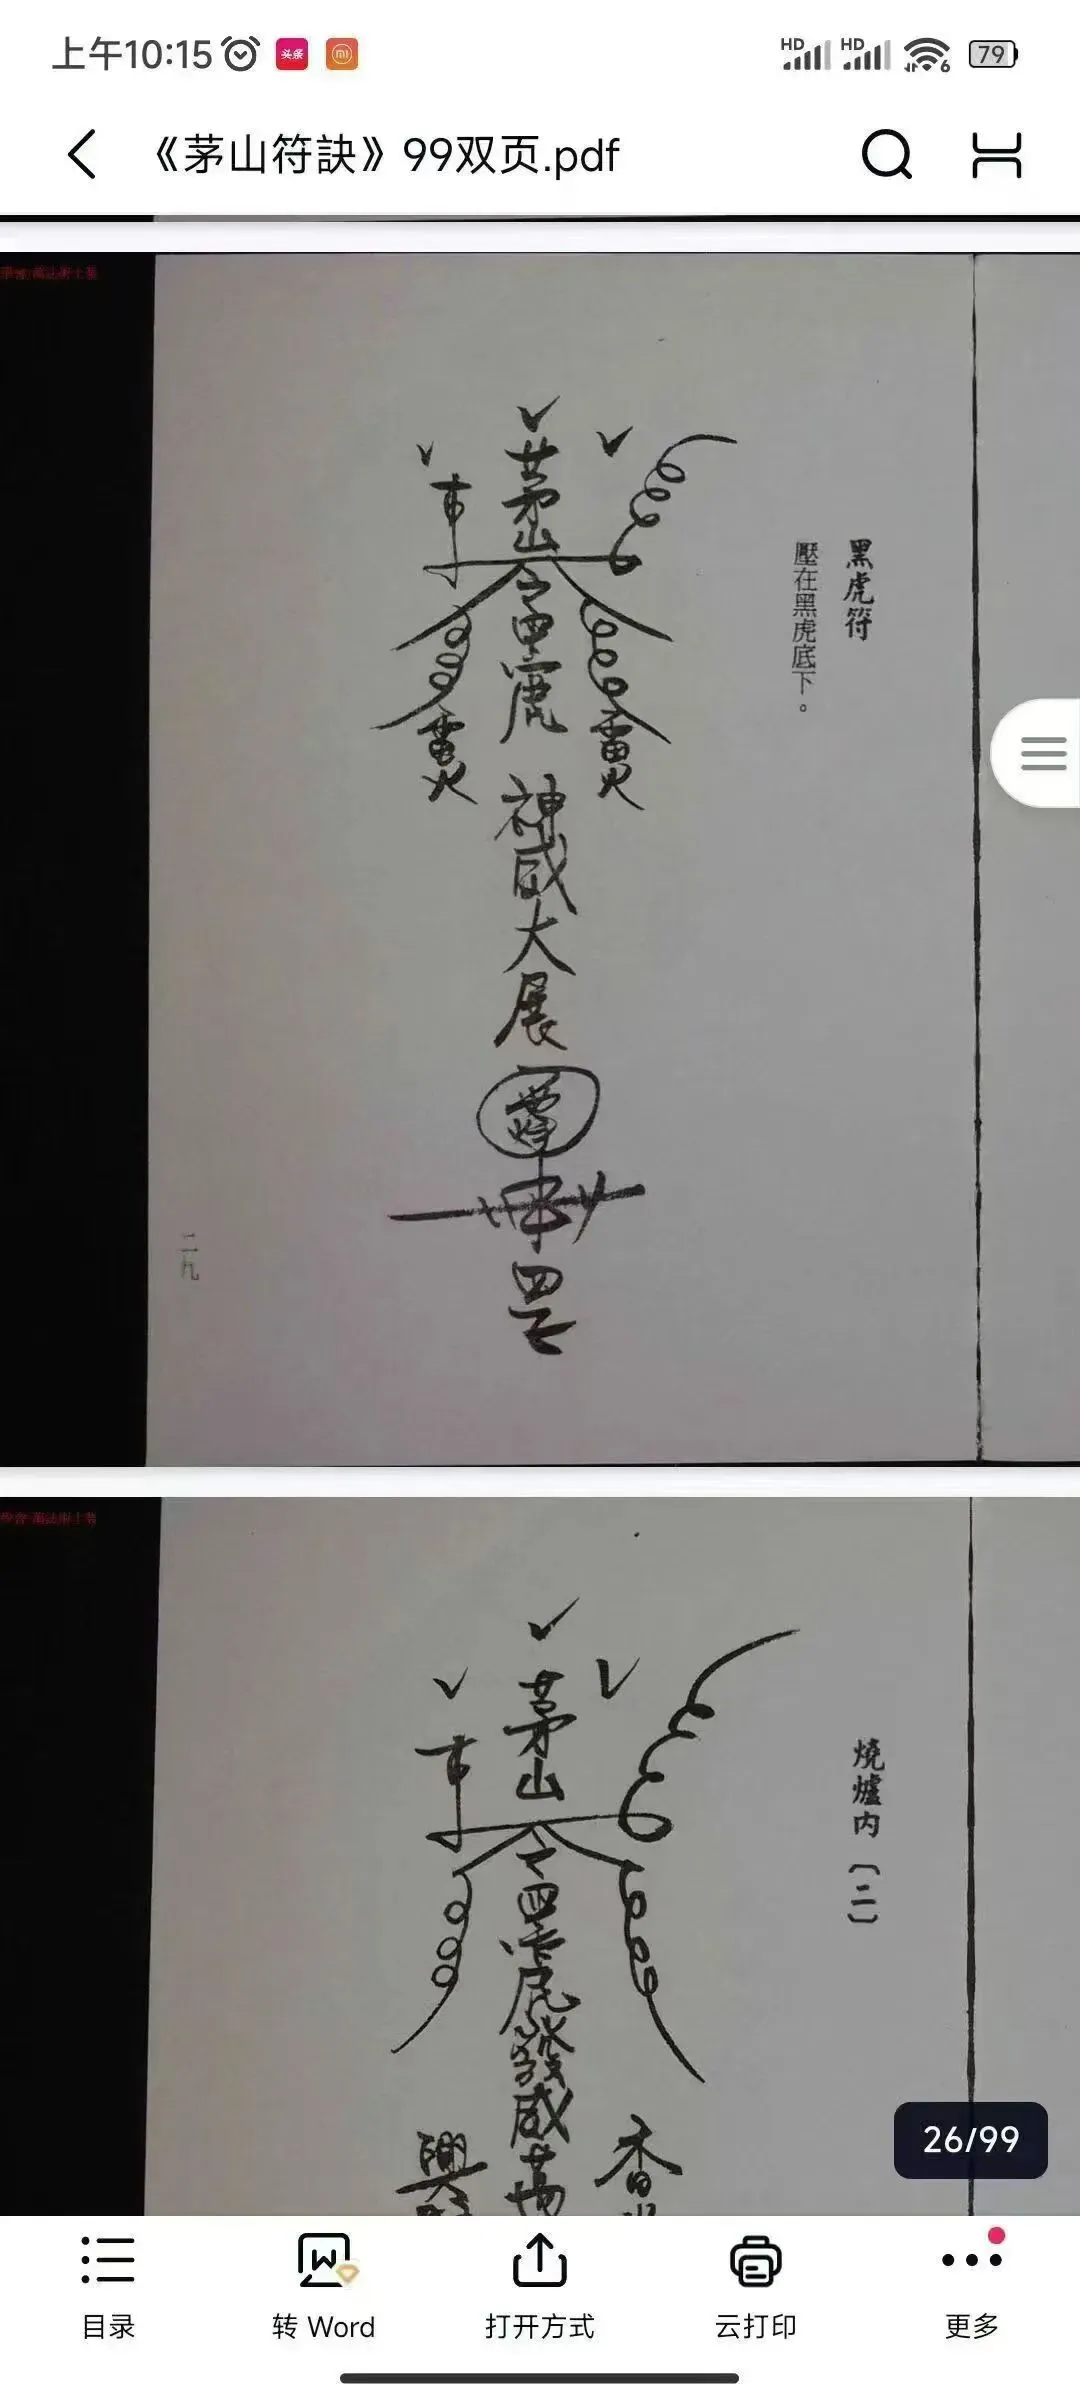 上午10:15
头条
HD
HD
6
79
《茅山符訣》99双页.pdf
黑虎符
壓在黑虎底下。
茅山
雷火
雷火
神威大展
罡
二九
燒爐內〔二〕
茅山
發威
香
興
26/99
目录
转 Word
打开方式
云打印
更多